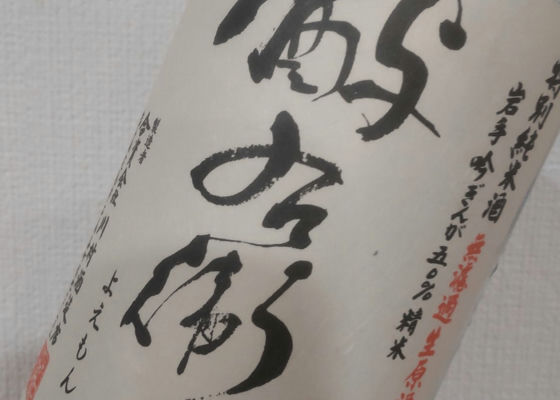 特別純米酒
岩手吟ぎんが五〇%精米
無濾過生原酒
酉与右衛
よえもん
製造者
合資会社川村酒造店